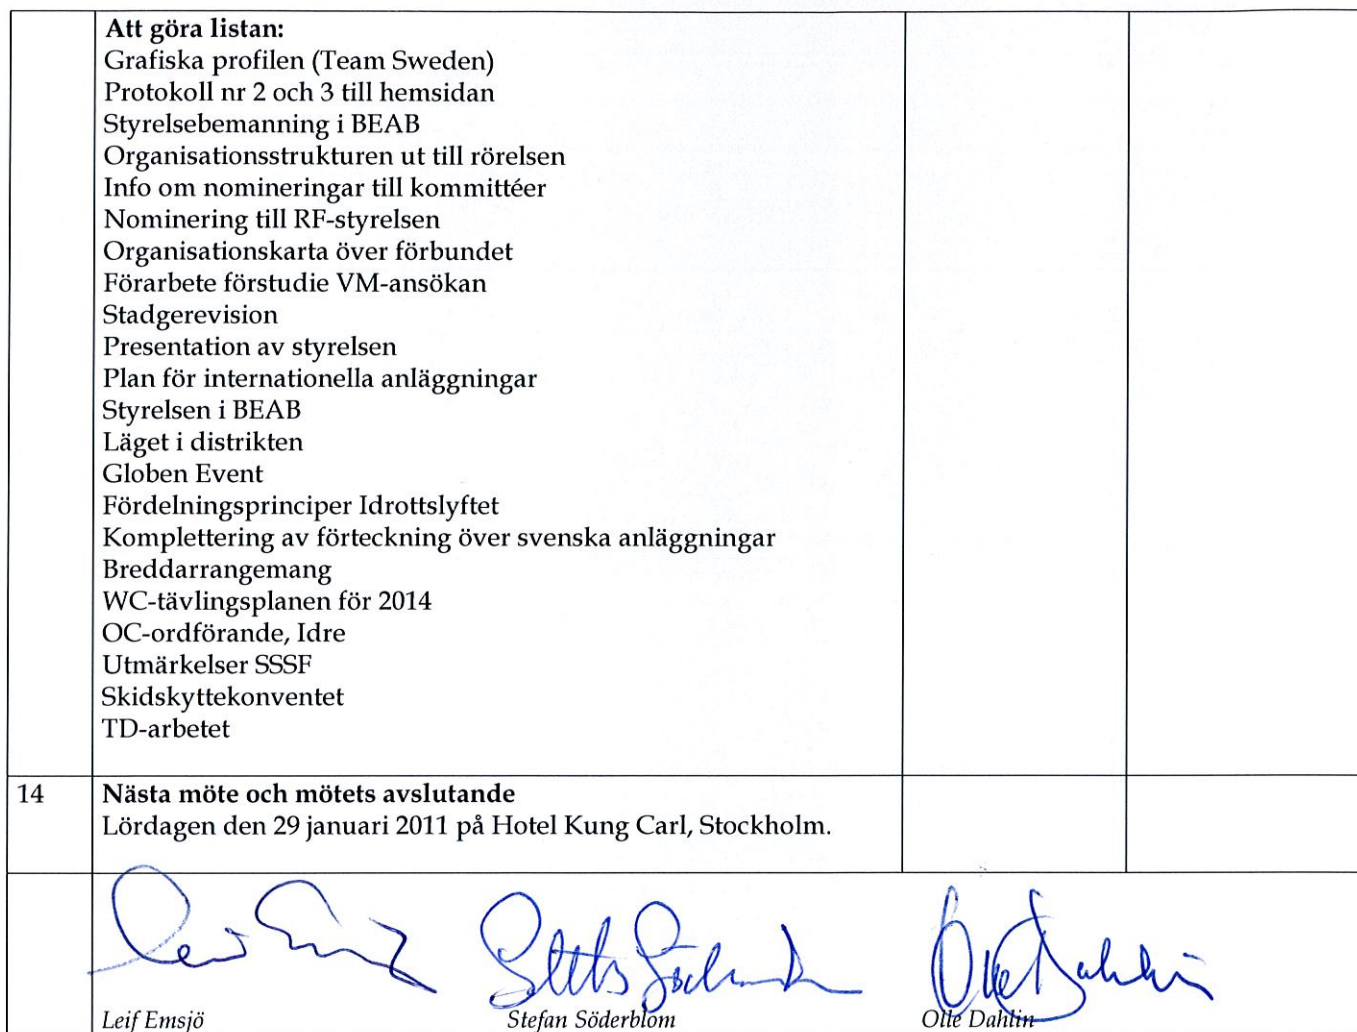 Att göra listan:
Grafiska profilen (Team Sweden)
Protokoll nr 2 och 3 till hemsidan
Styrelsebemanning i BEAB
Organisationsstrukturen ut till rörelsen
Info om nomineringar till kommittéer
Nominering till RF-styrelsen
Organisationskarta över förbundet
Förarbete förstudie VM-ansökan
Stadgerevision
Presentation av styrelsen
Plan för internationella anläggningar
Styrelsen i BEAB
Läget i distrikten
Globen Event
Fördelningsprinciper Idrottslyftet
Komplettering av förteckning över svenska anläggningar
Breddarrangemang
WC-tävlingsplanen för 2014
OC-ordförande, Idre
Utmärkelser SSSF
Skidskyttekonventet
TD-arbetet
14 Nästa möte och mötets avslutande
Lördagen den 29 januari 2011 på Hotel Kung Carl, Stockholm.
Olle Dahlin
Leif Emsjö Stefan Söderblom Olle Dahlin